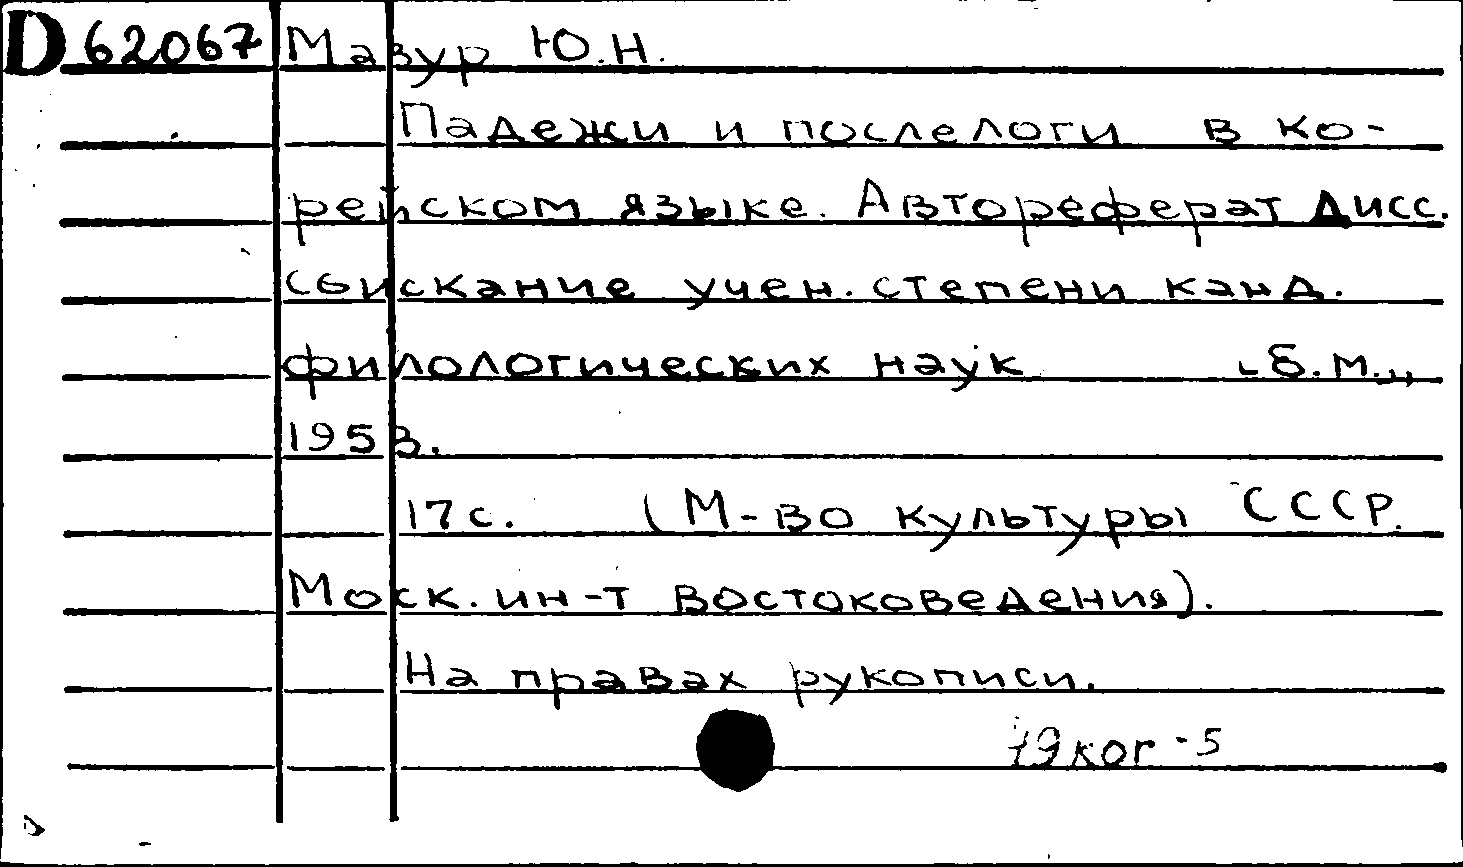 D 62067 Мазур Ю.Н.
Падежи и послелоги в ко-
рейском языке. Автореферат дисс.
соискание учен. степени канд.
филологических наук [б.м.],
1953.
17с. (М-во культуры СССР.
Моск. ин-т востоковедения).
На правах рукописи.
79 ког-5